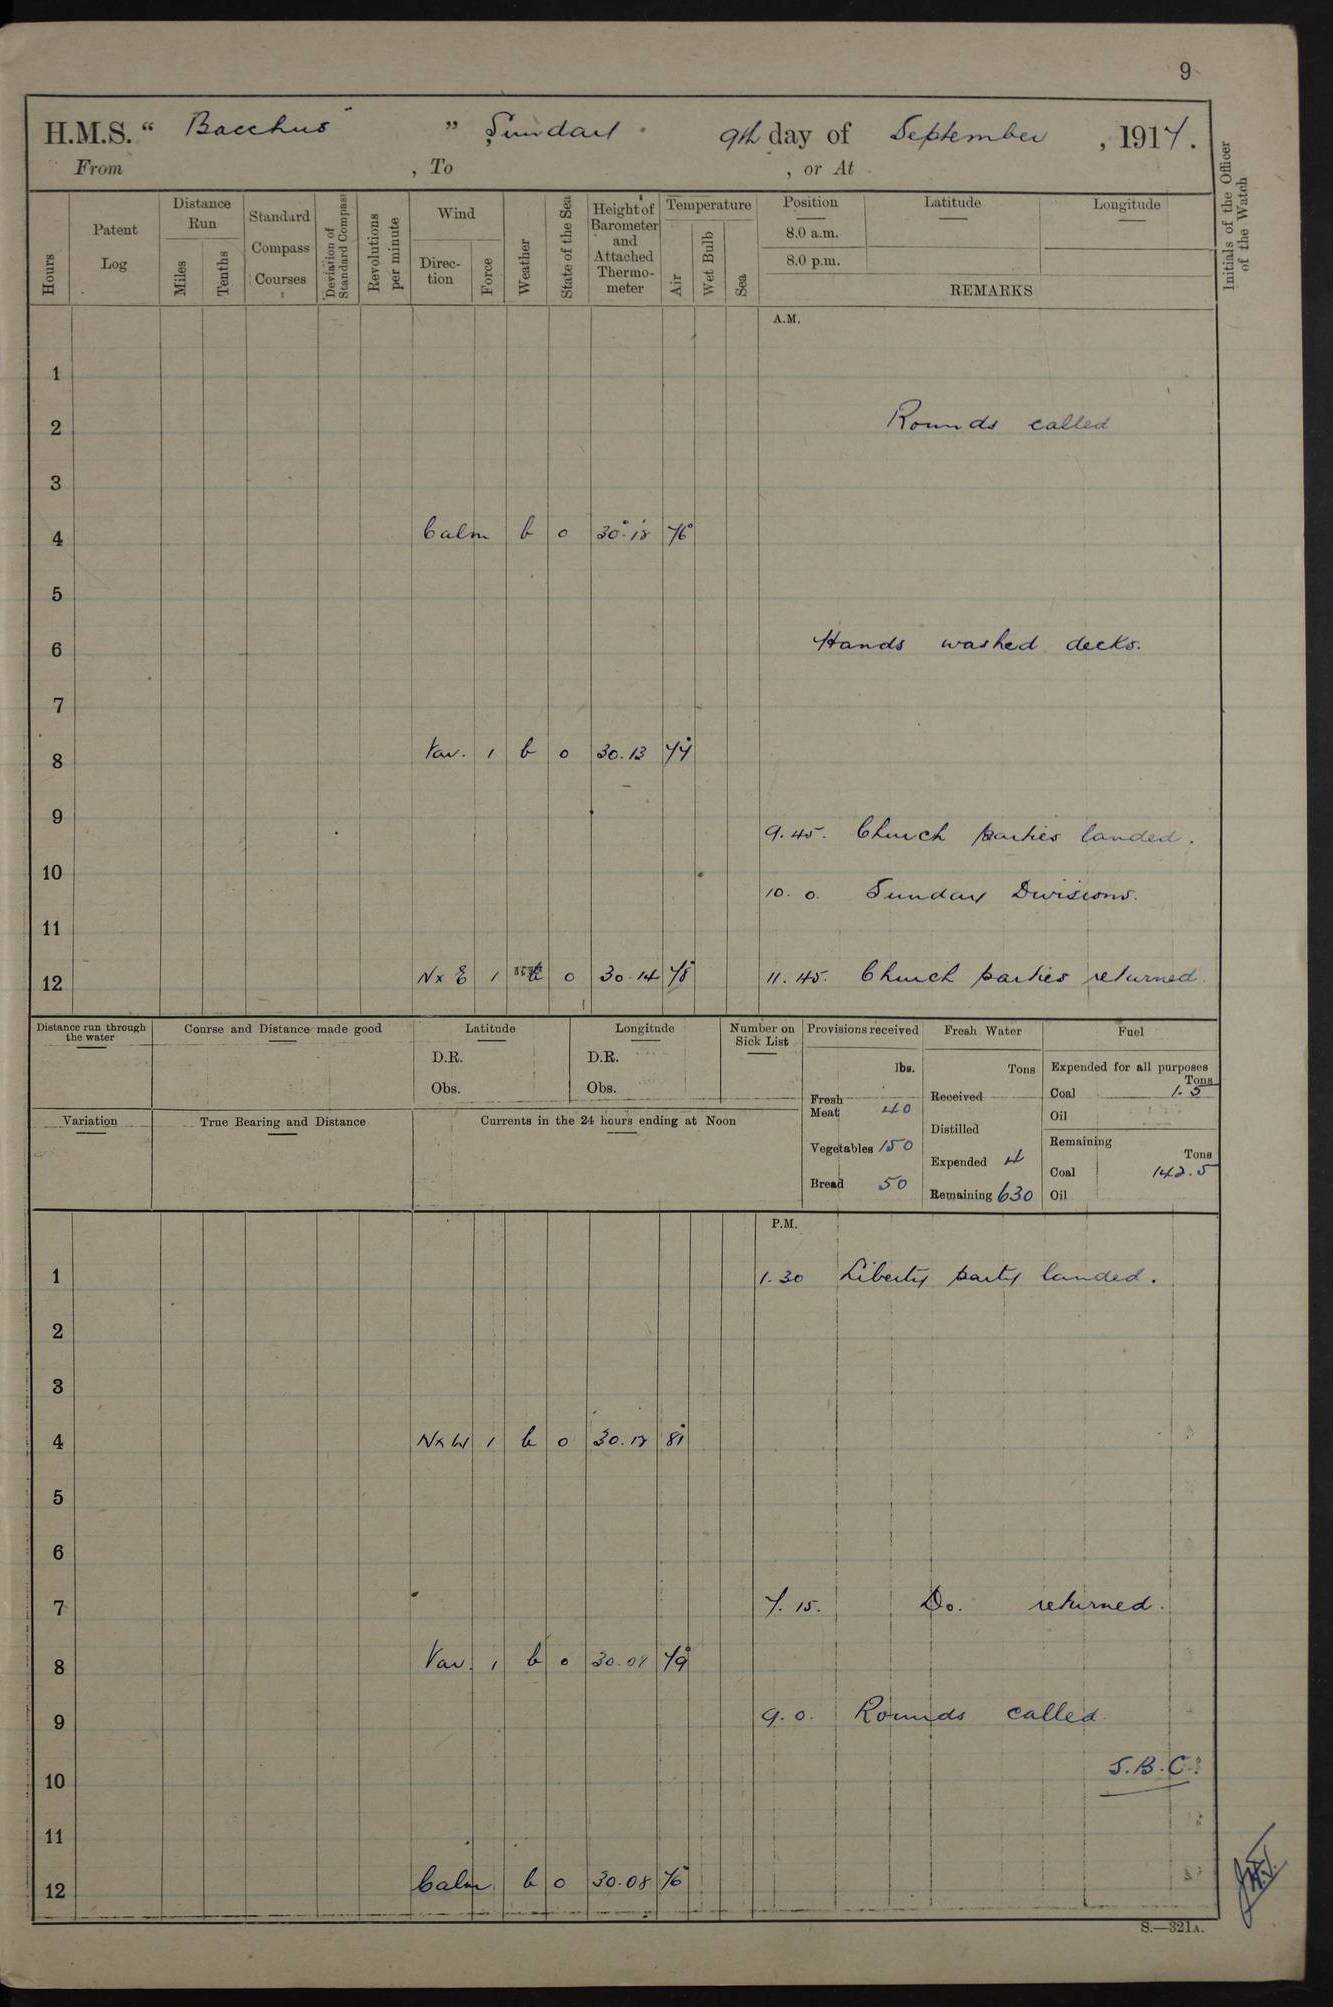 9
H.M.S. “ Bacchus ” Sunday 9th day of September , 1917.
From , To , or At
Hours
Patent Log
Distance Run
Miles
Tenths
Standard Compass Courses
Deviation of Standard Compass
Revolutions per minute
Wind
Direction
Force
Weather
State of the Sea
Height of Barometer and Attached Thermometer
Temperature
Air
Wet Bulb
Sea
Position
8.0 a.m.
8.0 p.m.
Latitude
Longitude
REMARKS
Initials of the Officer of the Watch
A.M.
1
2 Rounds called
3
4 Calm b o 76°
5
6 Hands washed decks.
7
8 Var. 1 b o 30.13 77°
9 9.45. Church parties landed.
10 10. 0. Sunday Divisions.
11
12 N x E 1 o 30.14 78° 11.45. Church parties returned
Distance run through the water
Course and Distance made good
Latitude
D.R.
Obs.
Longitude
D.R.
Obs.
Number on Sick List
Provisions received
lbs.
Fresh Meat 40
Vegetables 150
Bread 50
Fresh Water
Tons
Received
Distilled
Expended 4
Remaining 630
Fuel
Expended for all purposes
Tons
Coal 1.5
Oil
Remaining
Tons
Coal 142.5
Oil
Variation
True Bearing and Distance
Currents in the 24 hours ending at Noon
P.M.
1 1.30 Liberty party landed.
2
3
4 N x W 1 b o 81°
5
6
7 7.15. Do. returned.
8 Var. 1 b o 79°
9 9.0. Rounds called
S.B.C.
10
11
12 Calm b o 30.08 76°
S.—321A.